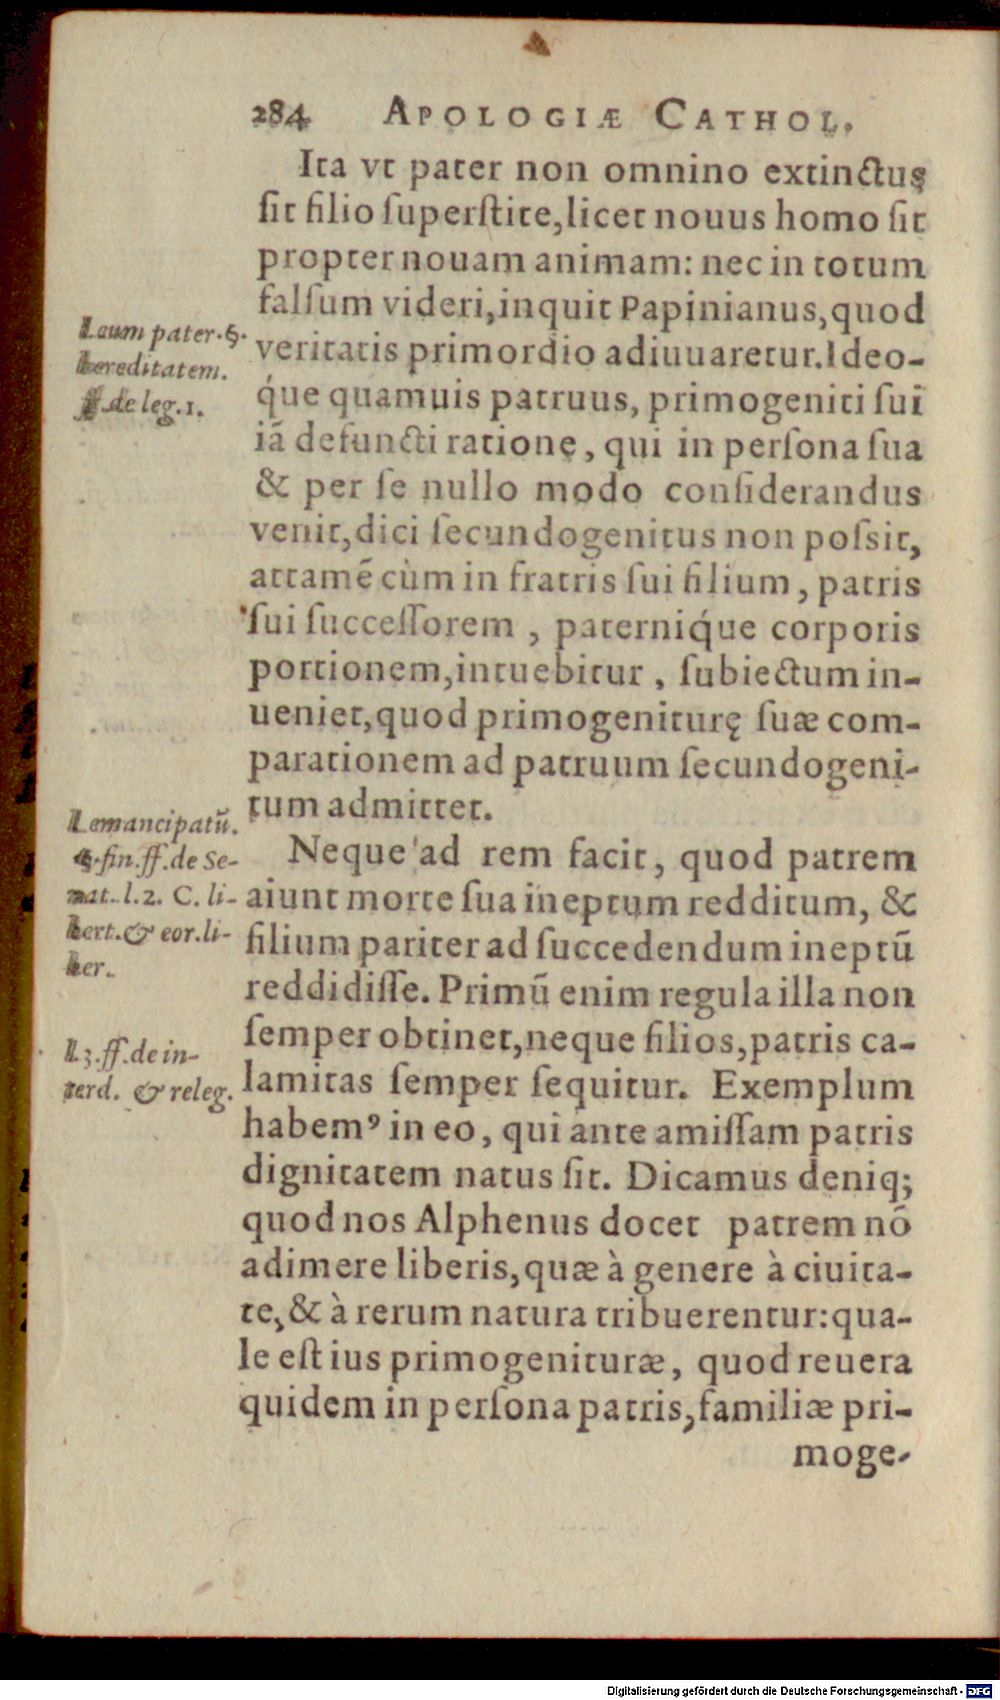 284 APOLOGIÆ CATHOL.
Ita vt pater non omnino extinctus
ſit filio ſuperſtite, licet nouus homo ſit
propter nouam animam: nec in totum
falſum videri, inquit Papinianus, quod
veritatis primordio adiuuaretur. Ideo-
q́ue quamuis patruus, primogeniti ſui
iã defuncti ratione, qui in perſona ſua
& per ſe nullo modo conſiderandus
venit, dici ſecundogenitus non poſsit,
attamẽ cùm in fratris ſui filium, patris
ſui ſucceſſorem, paterniq́ue corporis
portionem, intuebitur, ſubiectum in-
ueniet, quod primogeniturę ſuæ com-
parationem ad patruum ſecundogeni-
tum admittet.
L cum pater. §.
hereditatem.
ff. de leg. 1.
Neque ad rem facit, quod patrem
aiunt morte ſua ineptum redditum, &
filium pariter ad ſuccedendum ineptũ
reddidiſſe. Primũ enim regula illa non
ſemper obtinet, neque filios, patris ca-
lamitas ſemper ſequitur. Exemplum
habemꝰ in eo, qui ante amiſſam patris
dignitatem natus ſit. Dicamus deniq;
quod nos Alphenus docet patrem nõ
adimere liberis, quæ à genere à ciuita-
te, & à rerum natura tribuerentur: qua-
le eſt ius primogenituræ, quod reuera
quidem in perſona patris, familiæ pri-
moge-
L emancipatũ.
§. fin. ff. de Se-
nat. l. 2. C. li-
bert. & eor. li-
ber.
L 3. ff. de in-
terd. & releg.
Digitalisierung gefördert durch die Deutsche Forschungsgemeinschaft - DFG